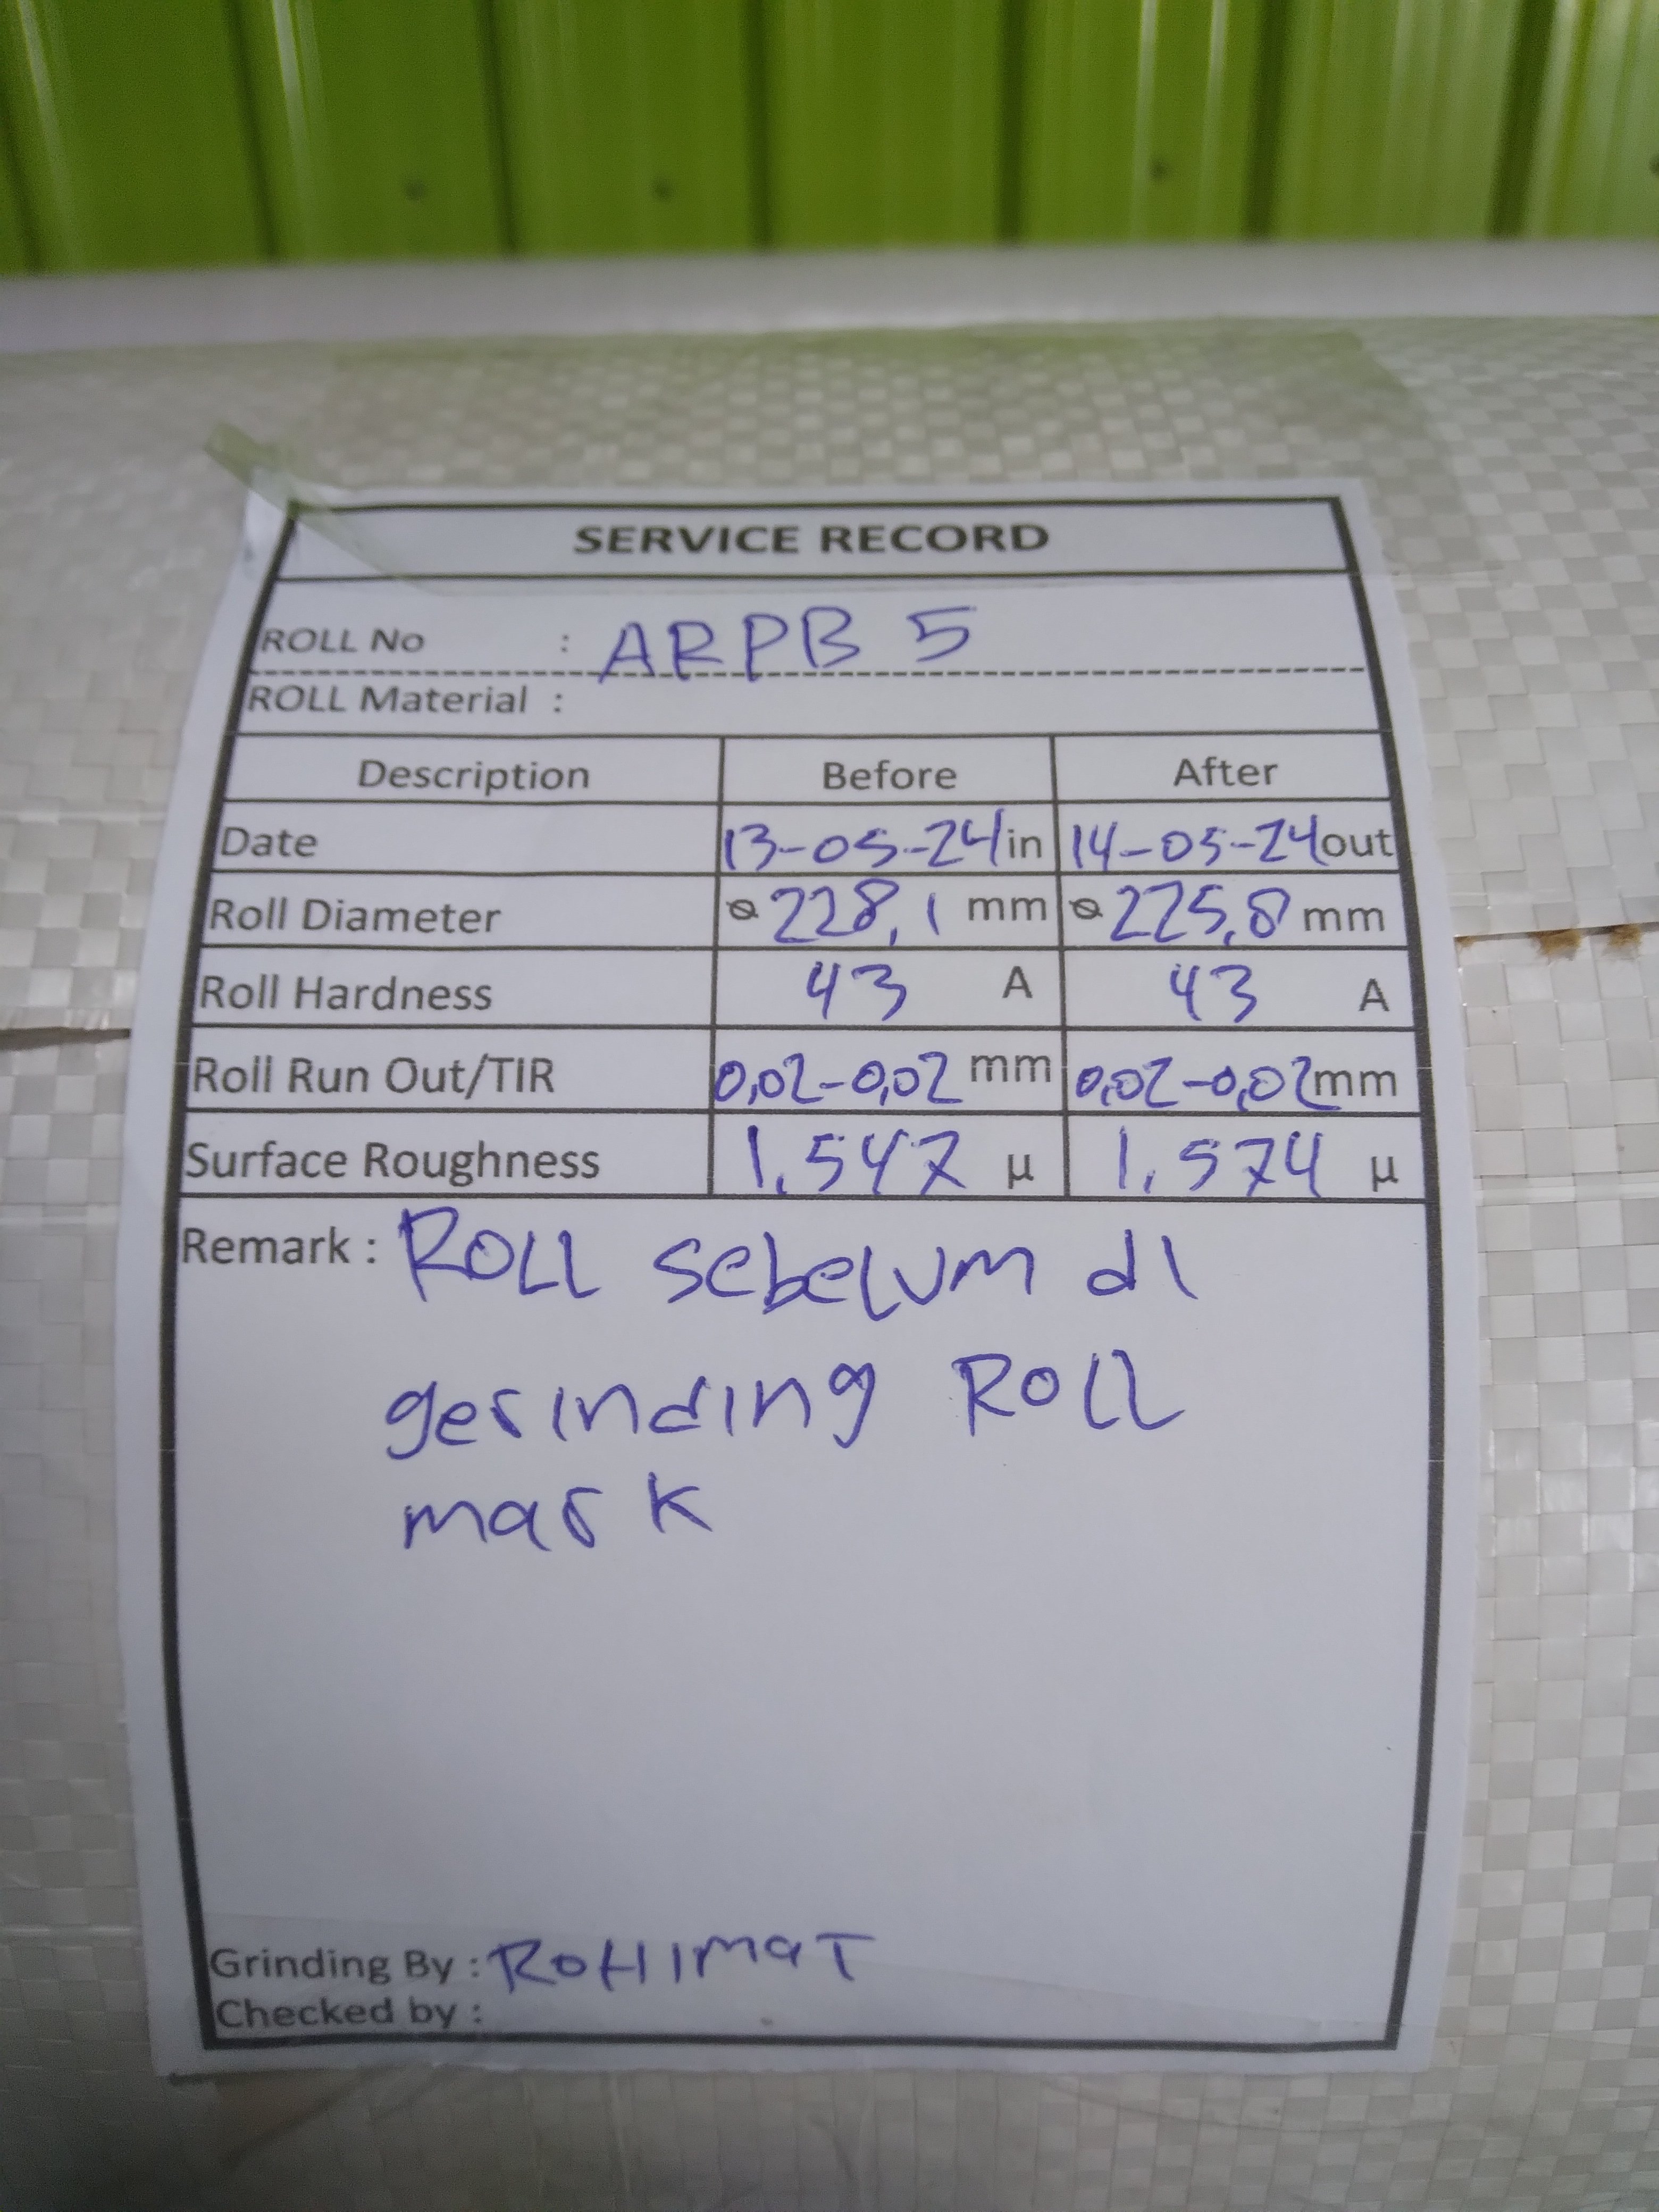 SERVICE RECORD
ROLL No : ARPB 5
ROLL Material :
Description Before After
Date 13-05-24 in 14-05-24 out
Roll Diameter ø 228,1 mm ø 225,8 mm
Roll Hardness 43 A 43 A
Roll Run Out/TIR 0,02-0,02 mm 0,02-0,02 mm
Surface Roughness 1.547 µ 1.574 µ
Remark : ROLL sebelum di
gerinding ROLL
mark
Grinding By : ROHIMAT
Checked by :